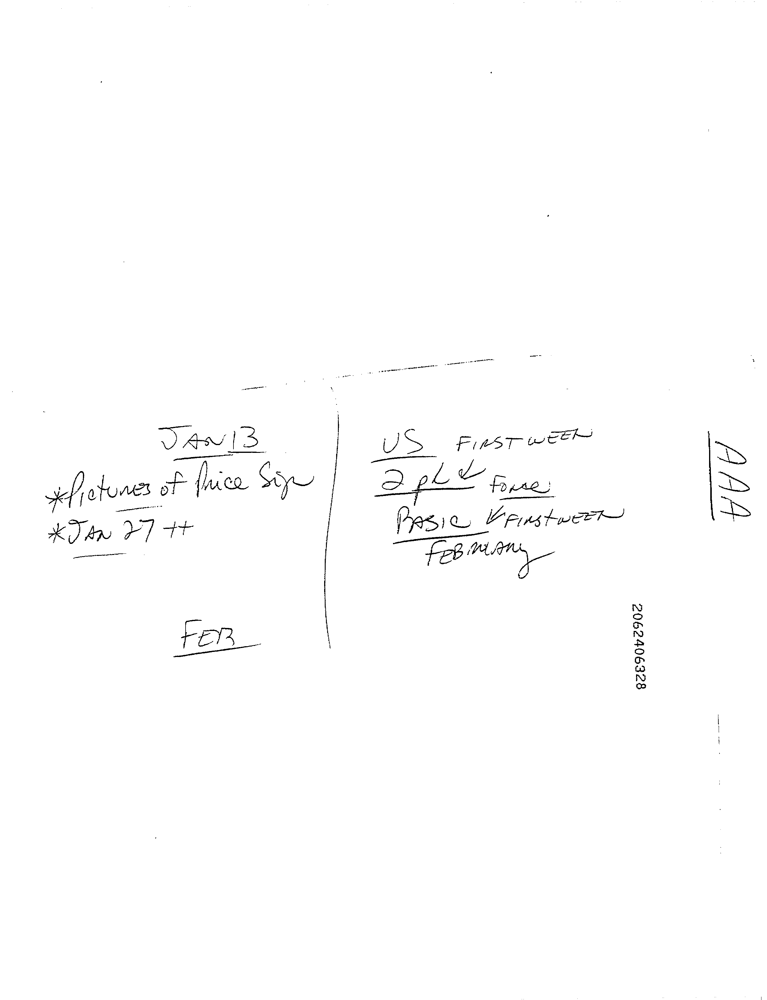 JAN 13
*Pictures of Price Sign
*JAN 27 ++
FEB
US FIRST WEEK
2 pk ↙ Force
BASIC ↙ FIRST WEEK
FEBRUARY
AAA
2062406328